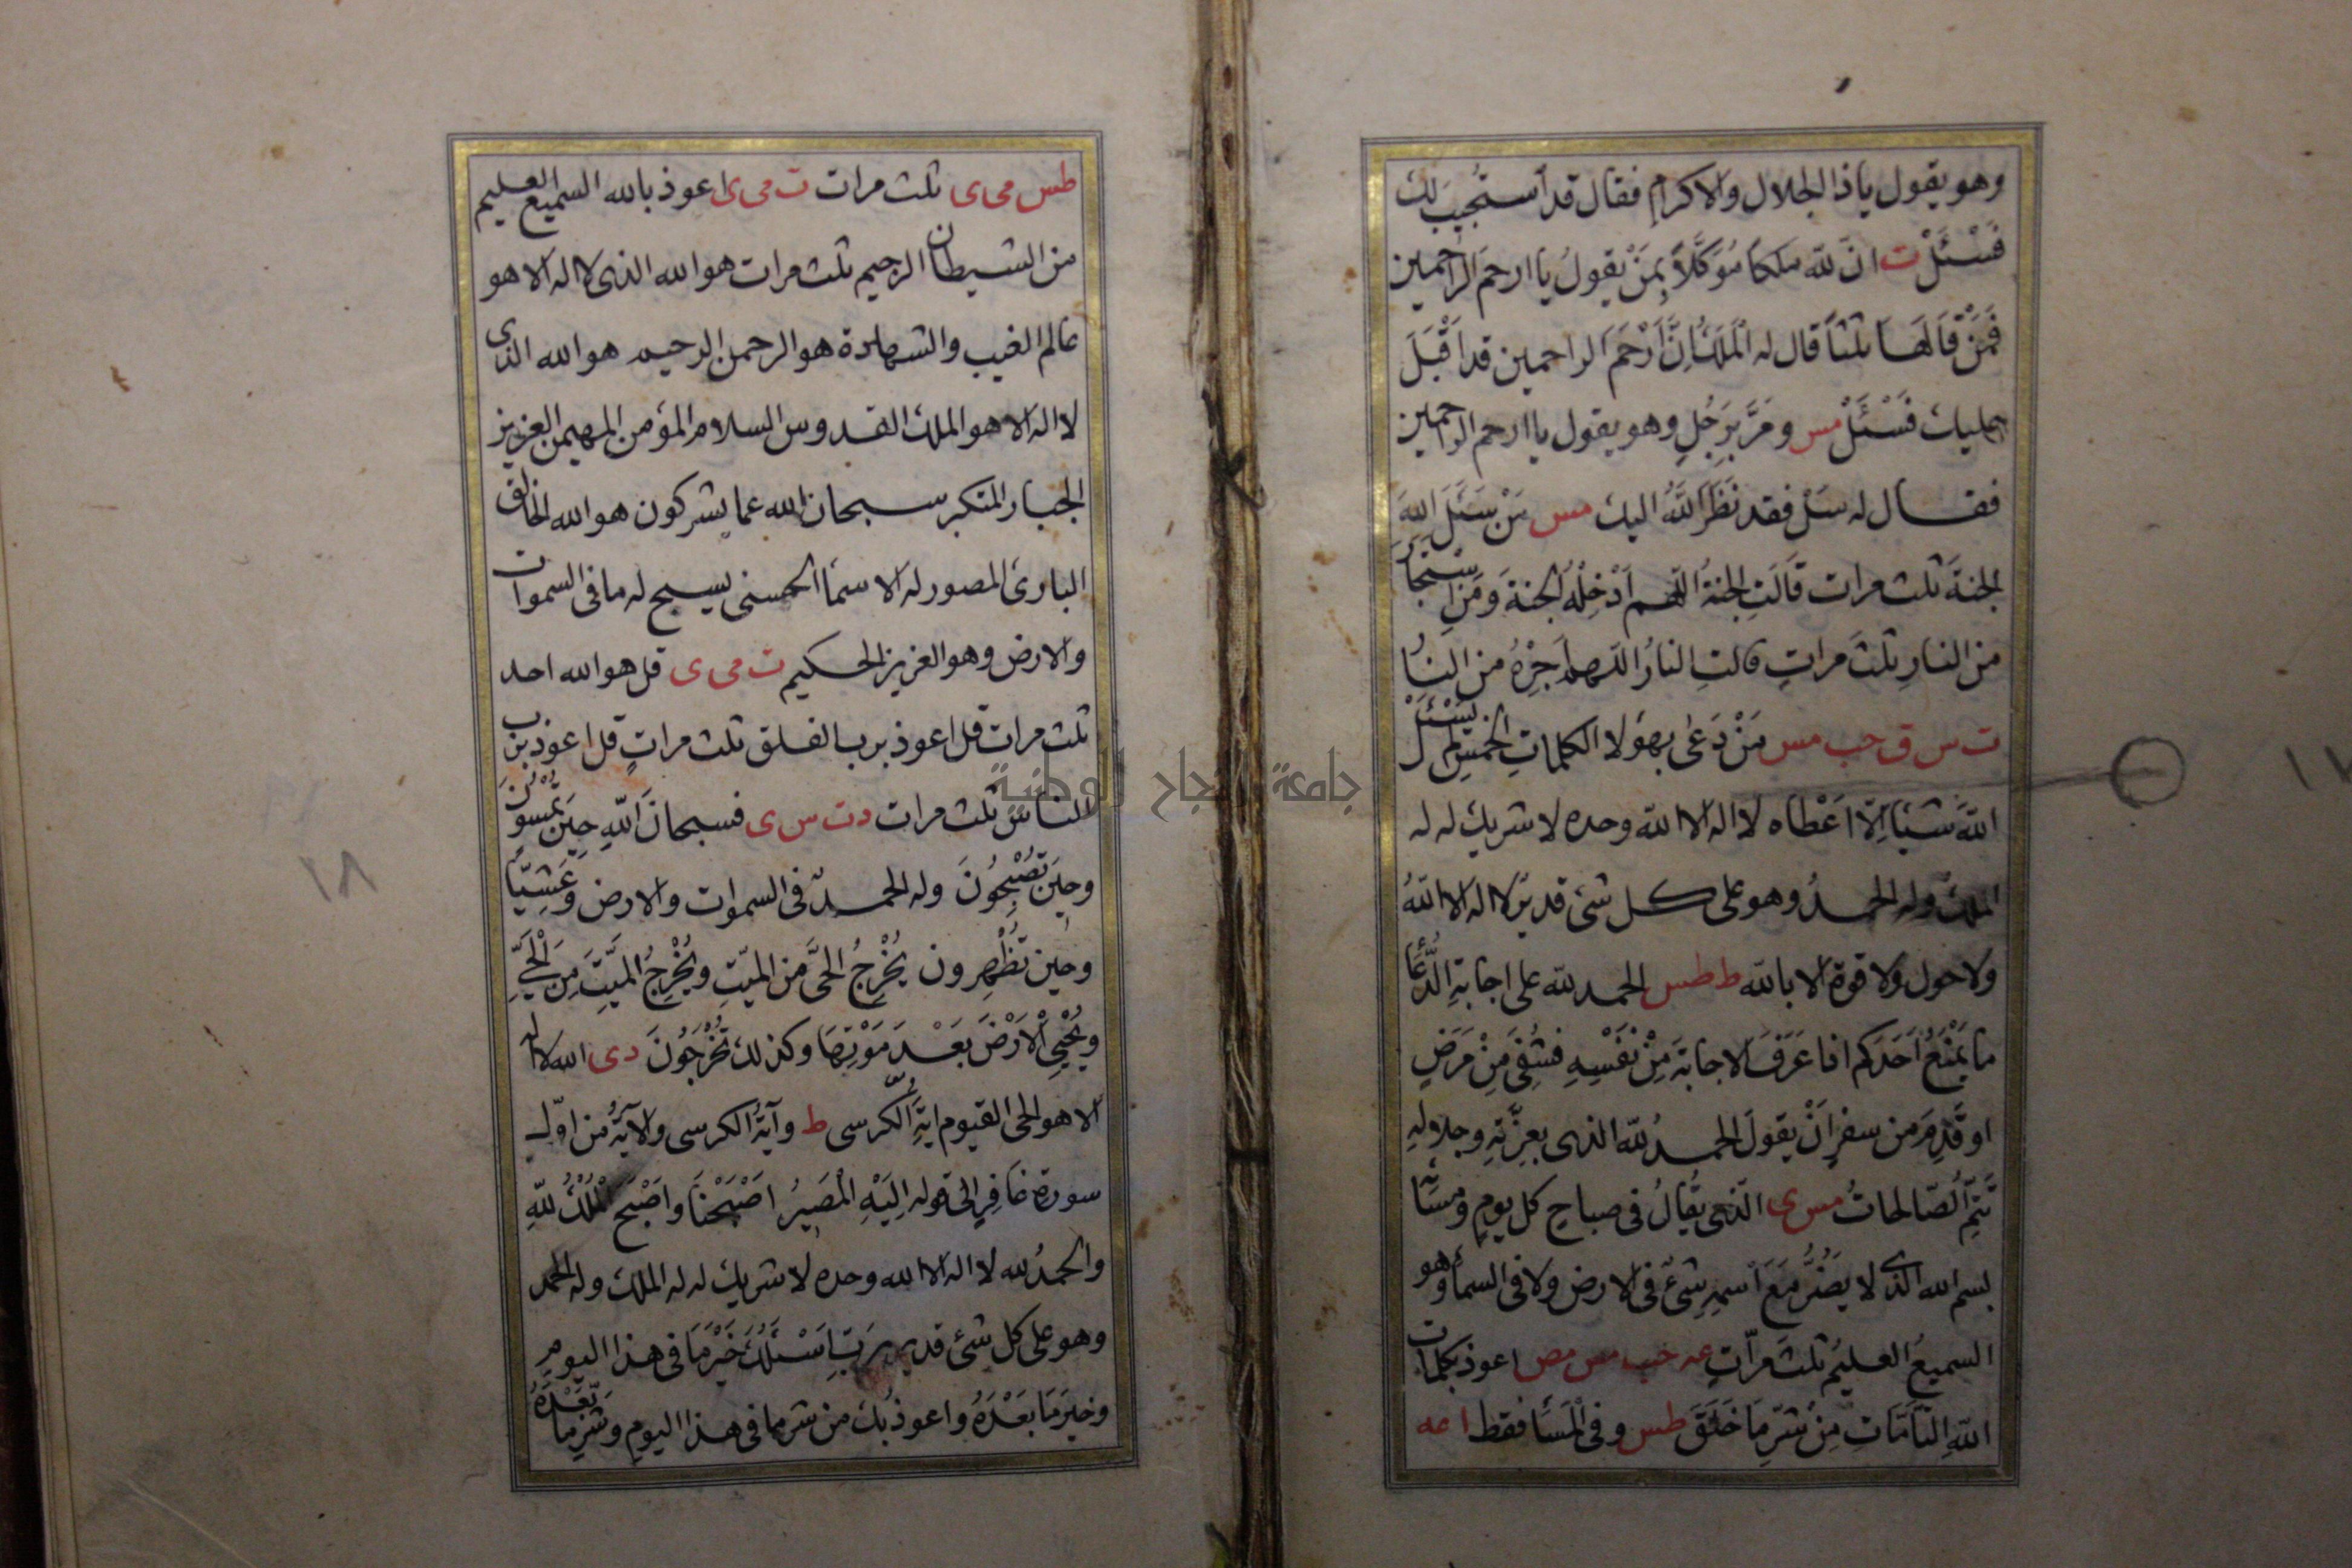 وهو يقول ياذا الجلال والاكرام فقال قد استجيب لك
فَسْئَلْ ت انّ لله ملكا مُوَكَّلاً بِمَنْ يقولُ يا ارحمَ الراحمين
فَمَنْ قَالَهَا ثلثاً قال له الْمَلَكُ اِنَّ اَرْحَمَ الراحمين قد اَقْبَلَ
عليك فَسْئَلْ مس ومَرَّ بِرَجُلٍ وهو يقول يا ارحم الراحمين
فقال له سَلْ فقد نَظَرَ اللهُ اليك مس مَنْ سَئَلَ اللهَ
الجنةَ ثلث مرات قَالَتِ الجنةُ اللهم اَدْخِلْهُ الجنةَ وَمَنِ استجَارَ
من النارِ ثلثَ مراتٍ قالتِ النارُ اللهم اَجِرْهُ من النارِ
ت س ق حب مس مَنْ دَعَىٰ بهؤلا الكلماتِ الخمسِ لم يَسْئَلْ
اللهَ شيئا اِلّا اَعْطَاه لا اله الا الله وحده لا شريك له له
الملك وله الحمدُ وهو على كل شئ قدير لا اله الا اللهُ
ولا حول ولا قوة الا بالله ط طس الحمد لله على اجابةِ الدُّعَا
ما يَمْنَعُ اَحَدَكم اذا عَرَفَ الاجابةَ مِنْ نَفْسِهِ فشُفِىَ مِنْ مَرَضٍ
او قَدِمَ من سفرٍ اَنْ يقولَ الحمدُ لله الذى بعِزَّتِهِ وجلالِهِ
تَتِمُّ الصّالحاتُ مس ى الّذى يُقَالُ فى صباحِ كل يومٍ ومسَائه
بسم الله الذى لا يَضُرُّ مَعَ اسمِهِ شئٌ فى الارض ولا فى السمأ وهو
السميعُ العليمُ ثلثَ مرّاتٍ عه حب مس مص اعوذ بكلمات
اللهِ التّامّاتِ مِنْ شرِّ مَا خَلَقَ طس وفى الْمَسَأ فقط ا عه
طس مى ى ثلث مرات ت مى ى اعوذ بالله السميع العليم
من الشيطان الرجيم ثلث مرات هو الله الذى لا اله الا هو
عالم الغيب والشهادة هو الرحمن الرحيم هو الله الذى
لا اله الا هو الملك القدوس السلام المؤمن المهيمن العزيز
الجبار المتكبر سبحان الله عما يشركون هو الله الخالق
البارئ المصور له الاسمأ الحسنى يسبح له ما فى السموات
والارض وهو العزيز الحكيم ت مى ى قل هو الله احد
ثلث مرات قل اعوذ برب الفلق ثلث مراتٍ قل اعوذ برب
الناس ثلث مرات د ت س ى فسبحانَ اللهِ حِينَ تُمْسُونَ
وحِينَ تُصْبِحُونَ وله الحمدُ فى السموات والارض وَعَشِيّاً
وحين تُظْهِرون يُخْرِجُ الحىَّ من الميّتِ ويُخْرِجُ الميّتَ مِنَ الْحَىِّ
ويُحْيِى الْاَرْضَ بَعْدَ مَوْتِهَا وكذلك تُخْرَجُونَ د ى الله لا اله
الا هو الحى القيوم ايةُ الكرسى ط وآيةُ الكرسى والآيةُ من اوّلِ
سورة غَافِرٍ الى قوله اِلَيْهِ الْمَصِيرُ اَصْبَحْنَا واَصْبَحَ الْمُلْكُ للهِ
والحمدُ لله لا اله الا الله وحده لا شريك له له الملك وله الحمد
وهو على كل شئ قدير رَبِّ اَسْئَلُكَ خَيْرَ مَا فى هذا اليومِ
وخيرَ مَا بَعْدَهُ واعوذُ بك من شر ما فى هذا اليومِ وشرِّ ما بَعْدَهُ
١٨
جامعة النجاح الوطنية